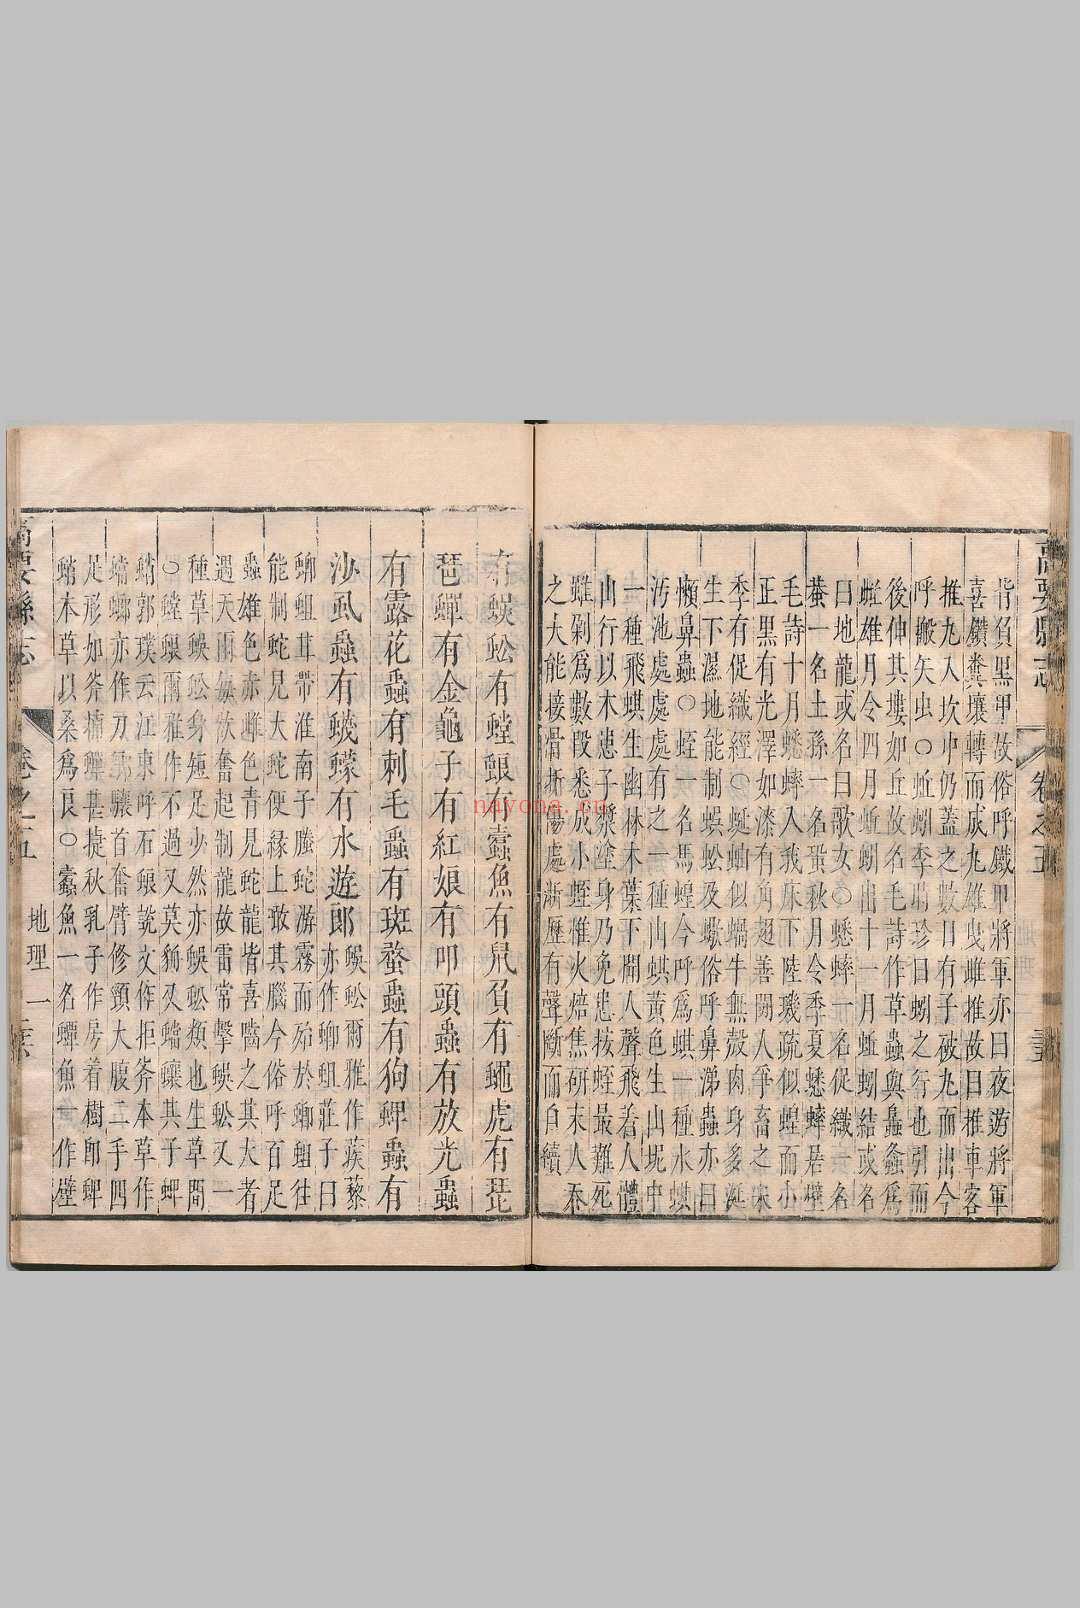 高要縣志 卷之五
背負黑甲故俗呼鐵甲將軍亦曰夜遊將軍
喜鑽糞壤轉而成丸雄曳雌推故曰推車客
推丸入坎中仍蓋之數日有子破丸而出今
呼搬矢虫○蚯蚓李時珍曰蚓之行也引而
後伸其塿如丘故名毛詩作草蟲與螽爲
蚯雄月令四月蚯蚓出十一月蚯蚓結或名
曰地龍或名曰歌女○蟋蟀一名促織一名
蛬一名土孫一名蛩秋月令季夏蟋蟀居壁
毛詩十月蟋蟀入我牀下陸璣疏似蝗而小
正黑有光澤如漆有角翅善鬬人爭畜之宋
季有促織經○蜒蚰似蝸牛無殼肉身多涎
生下濕地能制蜈蚣及蠍俗呼鼻涕蟲亦曰
懶鼻蟲○蛭一名馬蝗今呼爲蜞一種水蜞
汚池處處有之一種山蜞黃色生山坭中
一種飛蜞生幽林木葉下聞人聲飛着人體
山行以木患子漿塗身乃免患扳蛭最難死
雖剁爲數段悉成小蛭雖火焙焦研末人吞
之大能接骨折傷處漸歷有聲斷而自續
有蜈蚣有螳螂有蠹魚有鼠負有蠅虎有琵
琶蟬有金龜子有紅娘有叩頭蟲有放光蟲
有露花蟲有刺毛蟲有斑蝥蟲有狗蜱蟲有
沙虱蟲有蠛蠓有水遊郎
蜈蚣爾雅作蒺藜
亦作蝍蛆莊子曰
蝍蛆甘帶淮南子螣蛇游霧而殆於蝍蛆往
能制蛇見大蛇便緣上敢其腦今俗呼百足
蟲雄色赤雌色青見蛇龍皆喜嚙之其大者
遇天雨奮起制龍故雷常擊蜈蚣又一
種草蜈蚣身短足少然亦蜈蚣類也生草間
○螳螂爾雅作不過又莫貈又蟷蠰其子蜱
蛸郭璞云江東呼石蜋說文作拒斧本草作
蟷螂亦作刀螂驤首奮臂修頸大腹二手四
足形如斧捕蟬甚捷秋乳子作房着樹卽蜱
蛸本草以桑爲良○蠹魚一名蟫魚一作壁
高要縣志 卷之五 地理一
nayona.cn